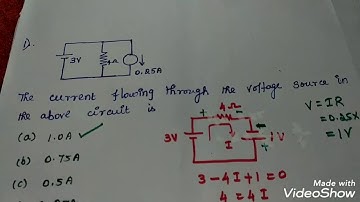 D.
3V
4Ω
0.25A
The current flowing through the voltage source in
the above circuit is
(a) 1.0A ✓
(b) 0.75A
(c) 0.5A
4Ω
+ -
3V
I
1V
+
3 - 4I + 1 = 0
4 = 4I
V = IR
= 0.25x
= 1V
Made with
VideoShow